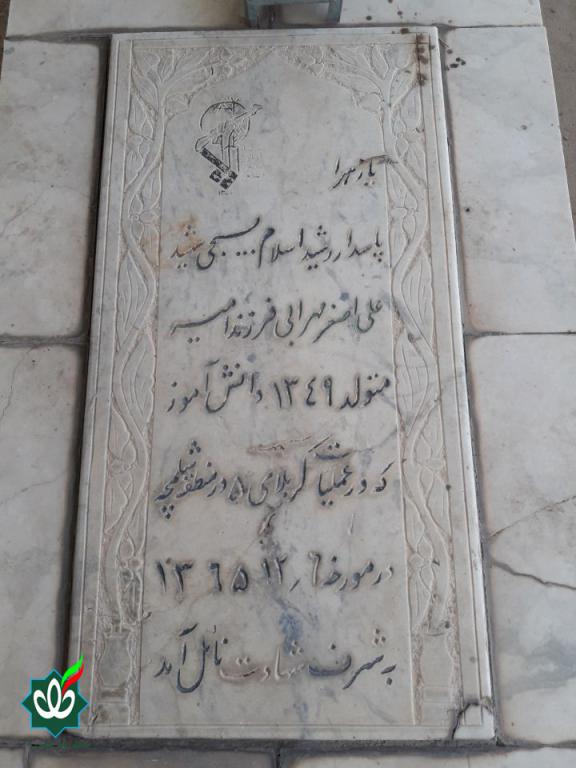 یا زهرا
پاسدار رشید اسلام بسیجی شهید
علی اصغر مهرابی فرزند امیر
متولد ١٣٤٩ دانش آموز
که در عملیات کربلای ٥ در منطقه شلمچه
در مورخه ٦/١٢/١٣٦٥
به شرف شهادت نائل آمد